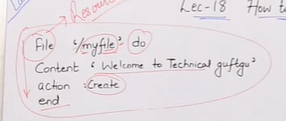 Resour
Lec-18 How t
File '/myfile' do
Content ' Welcome to Technical guftgu'
action :Create
end